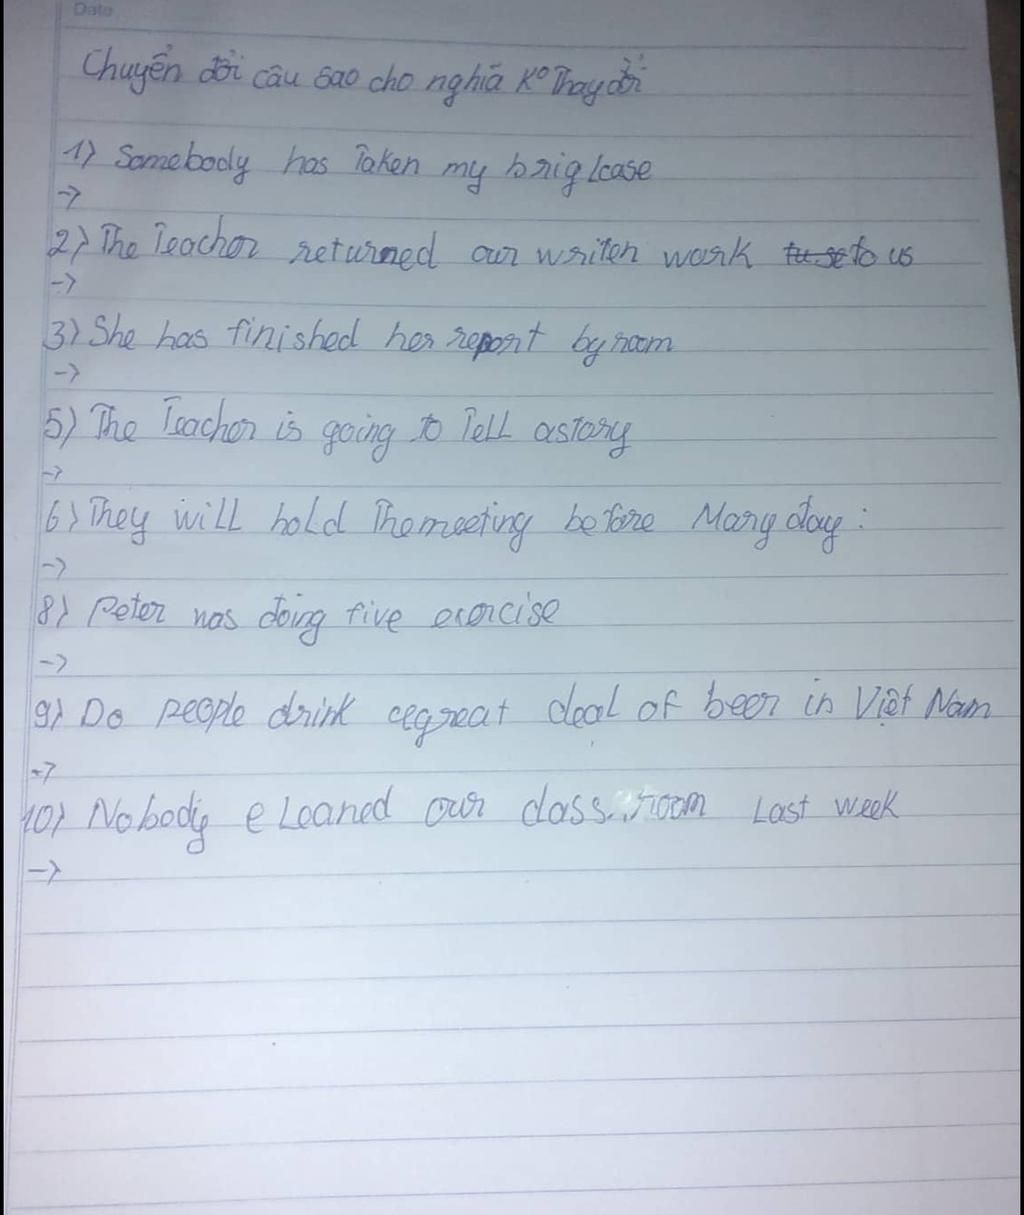 Date
Chuyển đổi câu sao cho nghĩa Kº Thay đổi
1) Somebody has Taken my briglcase
->
2) The Teacher returned our writen work to us
->
3) She has finished her report by noom
->
5) The Teacher is going to Tell astory
->
6) They will hold Themeeting before Mary day:
->
8) Peter was đoing five exercise
->
9) Do people drink agreat deal of beer in Việt Nam
->
10) Nobody eleaned our class room Last week
->